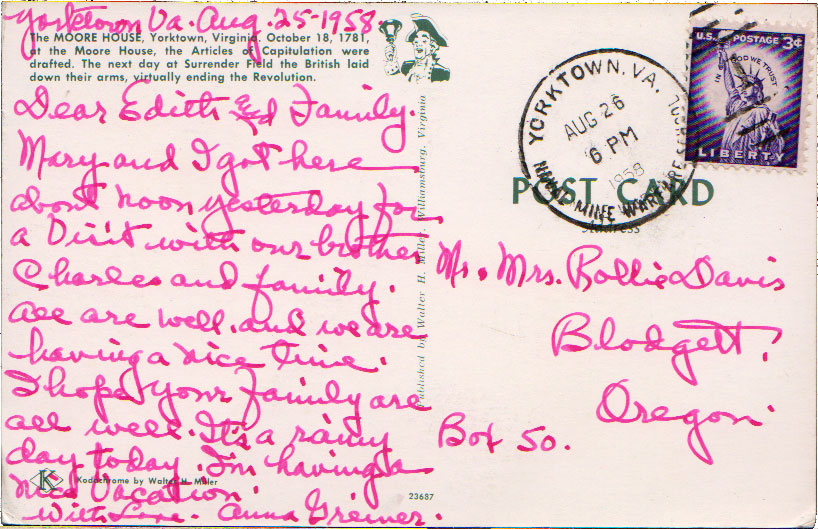 Yorktown Va. Aug. 25-1958.
The MOORE HOUSE, Yorktown, Virginia. October 18, 1781,
at the Moore House, the Articles of Capitulation were
drafted. The next day at Surrender Field the British laid
down their arms, virtually ending the Revolution.
Dear Edith and Family.
Mary and I got here
about noon yesterday for
a Visit with our brother
Charles and family.
all are well. and we are
having a nice time.
I hope your family are
all well. It's a rainy
day today. I'm having a
nice Vacation.
With Love. Anna Greiner.
K
Kodachrome by Walter H. Miller
23687
Published by Walter H. Miller, Williamsburg, Virginia
YORKTOWN, VA.
AUG 26
6 PM
1958
NAVAL MINE WARFARE SCHOOL
U.S. POSTAGE 3¢
IN GOD WE TRUST
LIBERTY
POST CARD
Address
Mr. Mrs. Rollie Davis
Blodgett,
Oregon.
Box 50.